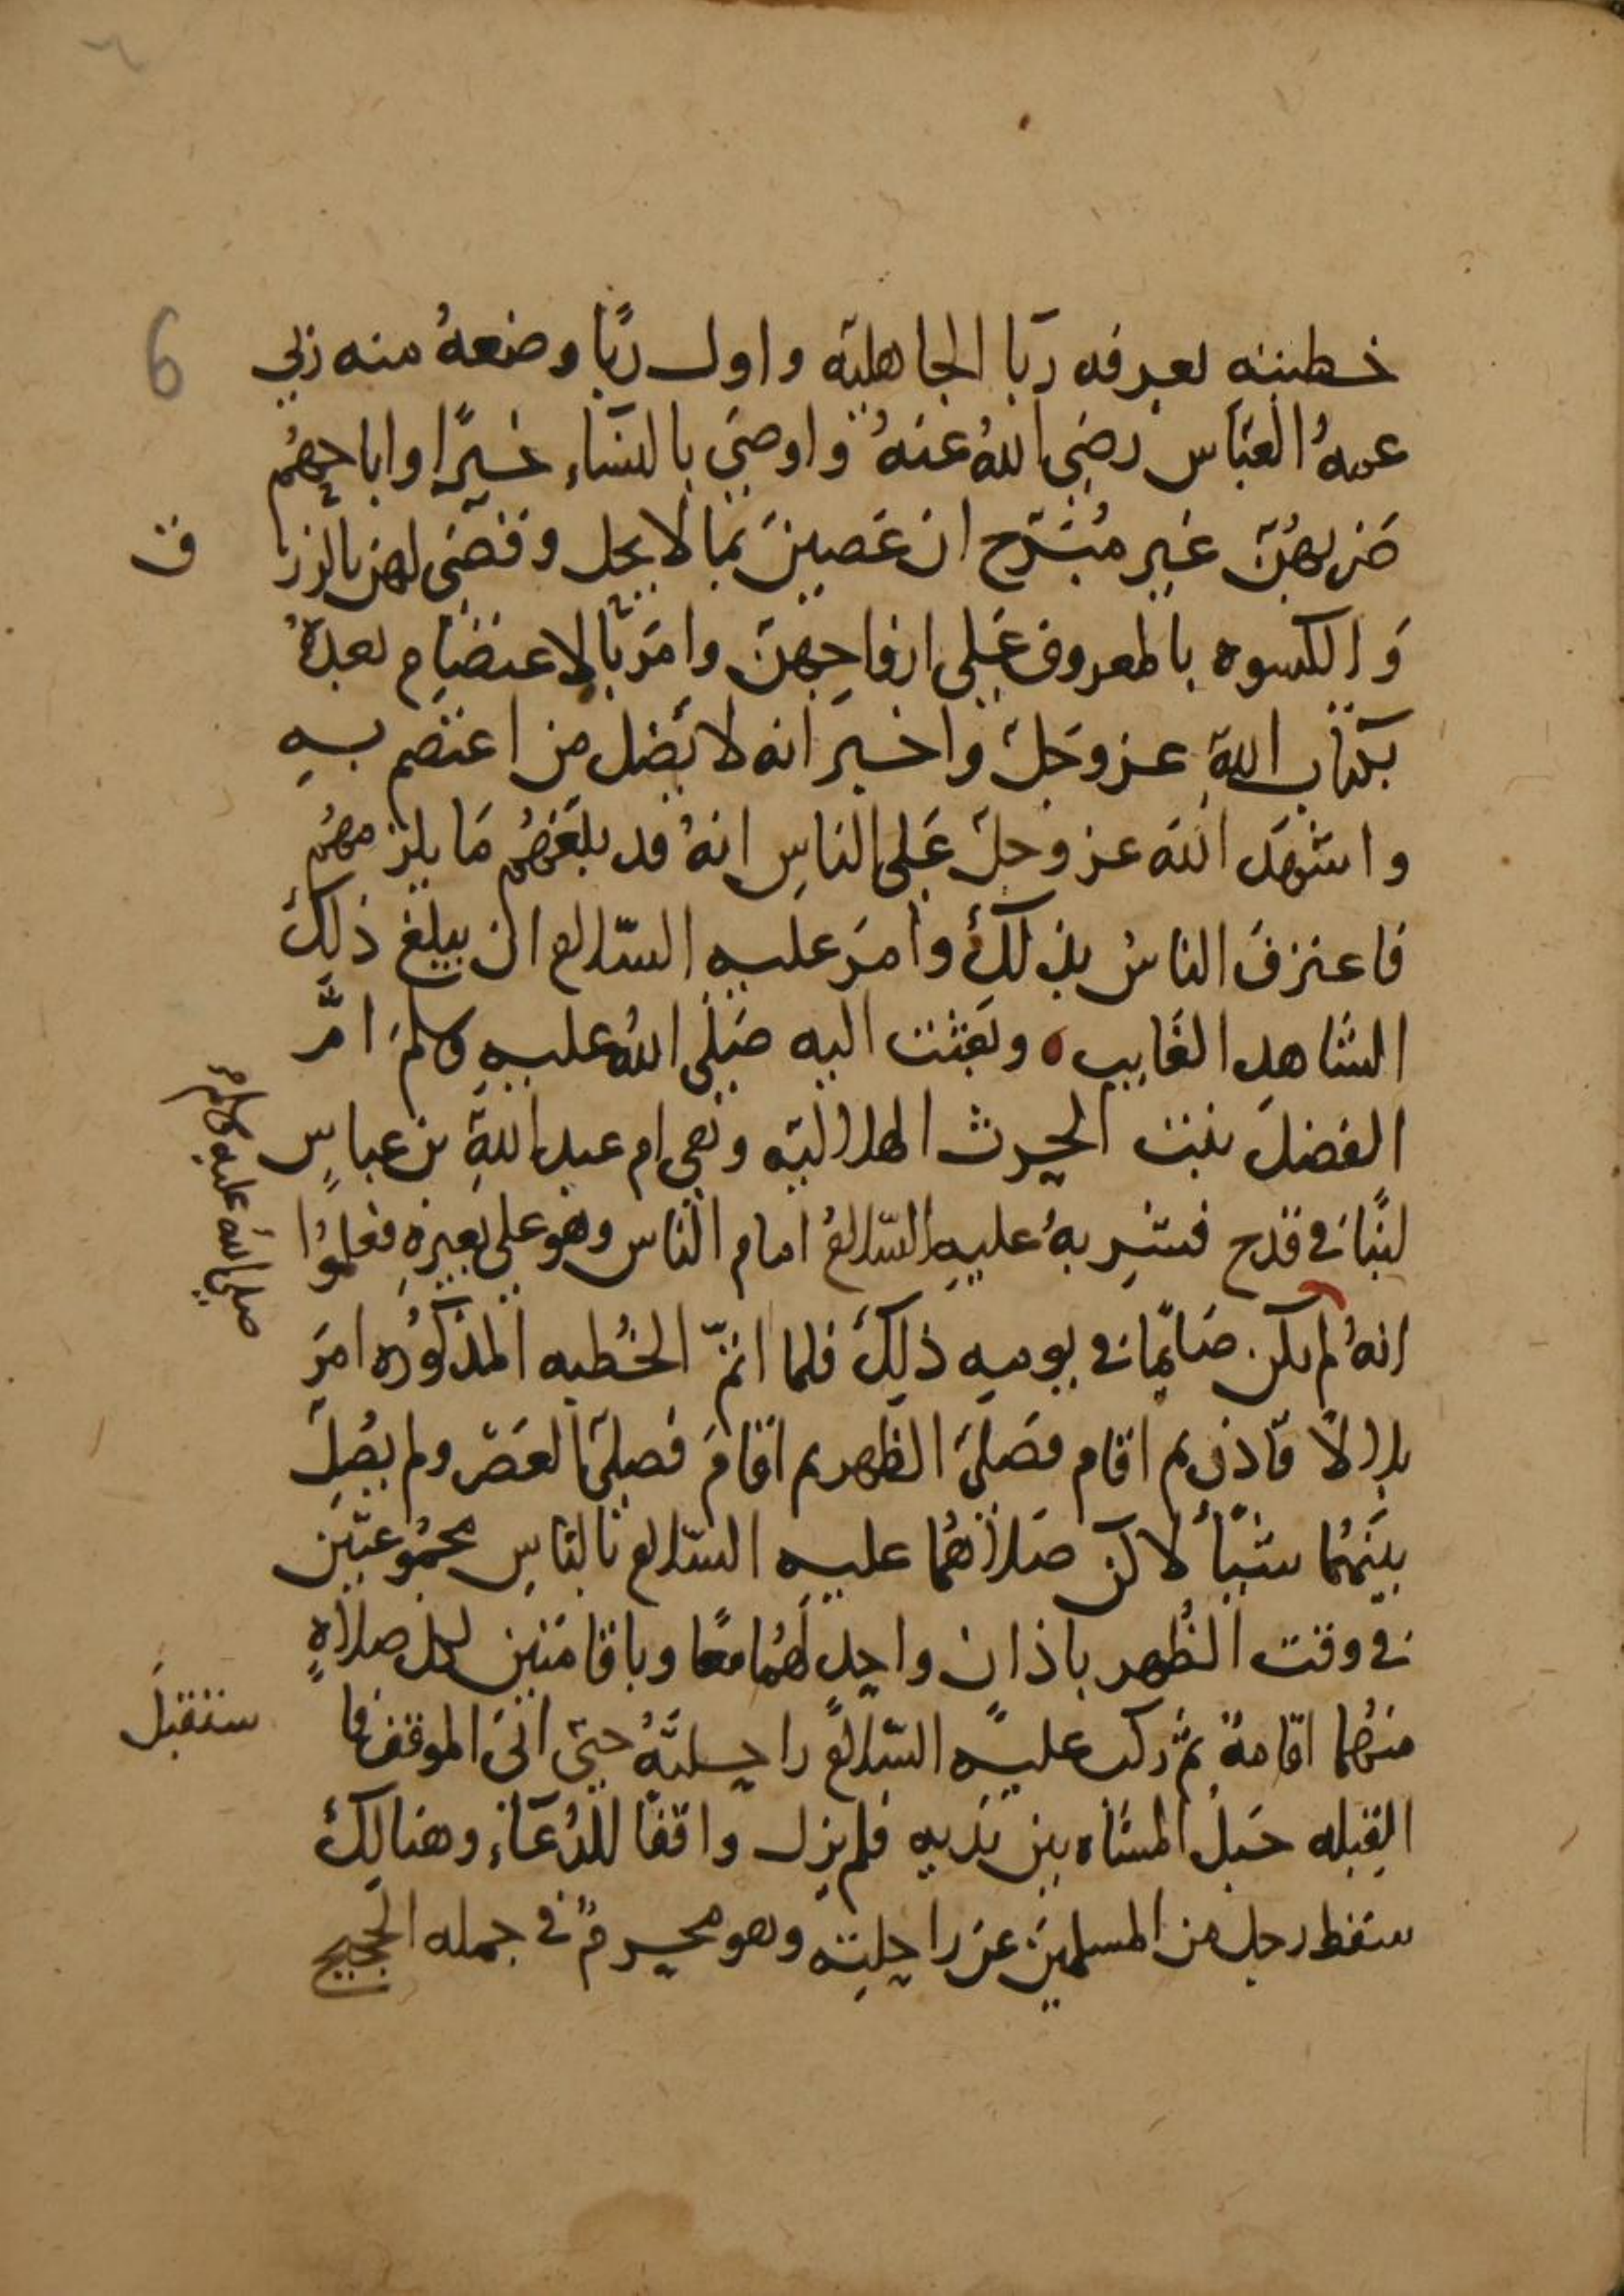 6
خطبته بعرفه ربا الجاهلية واول ربا وضعهُ منه ربى
عمهُ العبّاس رضى اللهُ عنهُ واوصى بالنسَاء خيرًا واباحهُم
ضربهُنّ غير مُبَرّح ان عَصينَ بما لا يحل وقضى لهن بالرز
ق
وَالكسوه بالمعروف عَلى ازواجِهنّ وامَرَ بالاعتصَام بعدهُ
بكتاب الله عزوجَلّ واخبر انه لا يَضل من اعتصم بهِ
واشهَد اللهَ عزوجلّ عَلى الناسِ انهُ قد بلغَهُم مَا يلزمهُم
فاعترفَ الناسُ بذلكَ وامرَ عليه السّلام ان يبلغ ذلكَ
الشاهد الغَايب ه وبَعثت اليه صَلى اللهُ عليهِ وسلمَ امُّ
الفضلَ بنت الحرث الهلاليّه وهى ام عبد اللهِ بن عباسٍ
لبنًا فى قدح فشربهُ عليهِ السّلامُ امام الناس وهو على بعيرهِ فعلموُا
صلى الله عليه وسلم
انهُ لم يكن صَايمًا فى يومه ذلكَ فلما اتمّ الخُطبه المذكُوره امرَ
بلالاً فاذن ثم اقام فصَلىَ الظهر ثم اقامَ فصلىَ العَصْر ولم يصُلِّ
بينَهُما شيئًا لاكن صَلاهُما عليه السّلام بالناسِ مجمُوعتين
فى وقت الظُهر باذان واحدٍ لهُما معًا وباقامَتين لكل صلاةٍ
منهُما اقامةٌ ثمّ ركب عليهِ السّلامُ راحلتَهُ حتى اتىَ الموقف فا
ستقبلَ
القِبله حَبلُ المشاه بين يَديهِ فلم يزل واقفًا للدُعَاء وهنالكَ
سقط رجل من المسلمينَ عن راحلتِه وهو محرمٌ فى جمله الحَجيج